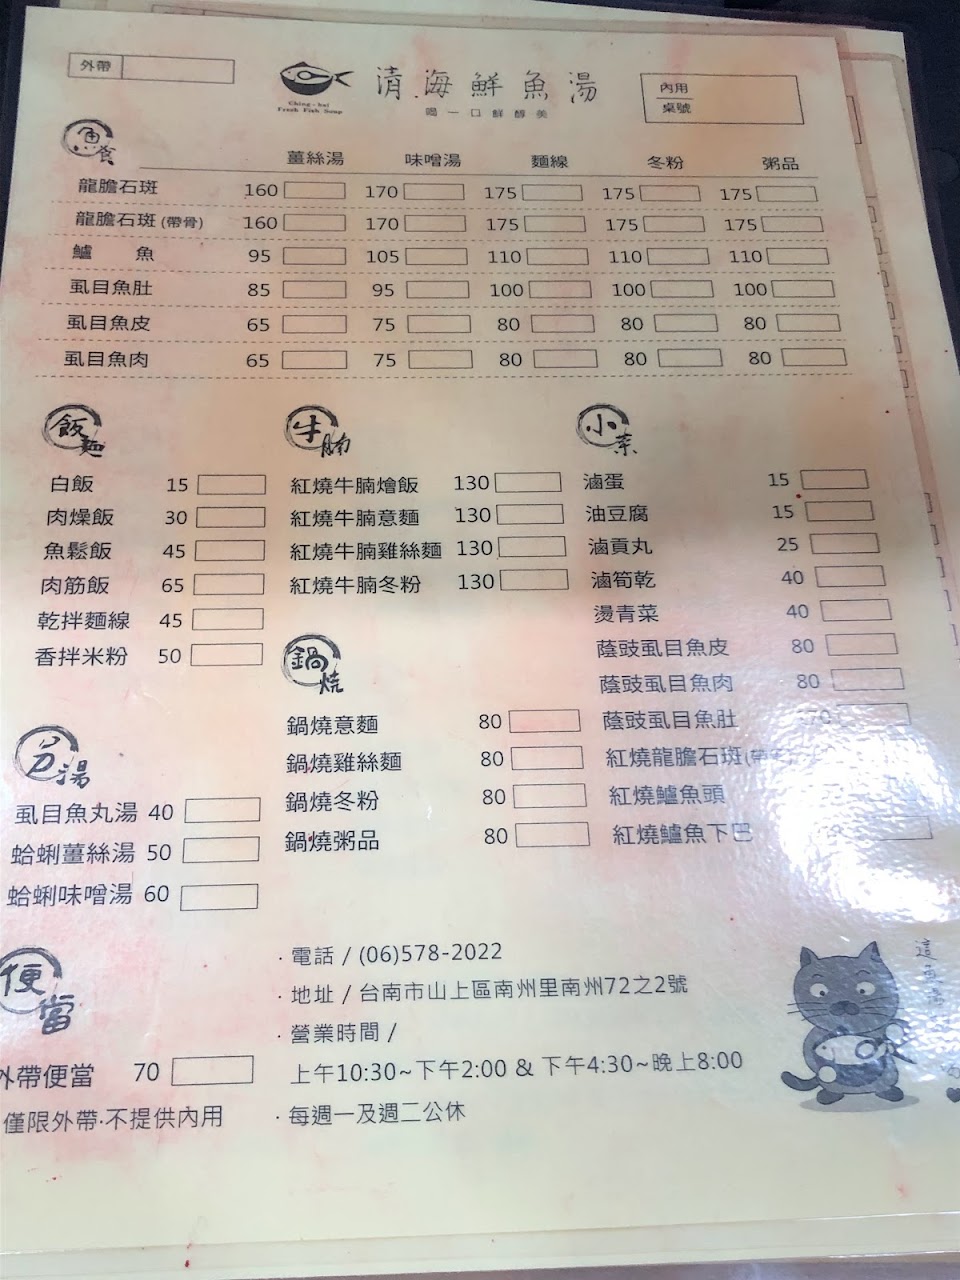 外帶
清海鮮魚湯
Ching-hai
Fresh Fish Soup
喝一口鮮醇美
內用
桌號
魚食
薑絲湯 味噌湯 麵線 冬粉 粥品
龍膽石斑 160 170 175 175 175
龍膽石斑(帶骨) 160 170 175 175 175
鱸 魚 95 105 110 110 110
虱目魚肚 85 95 100 100 100
虱目魚皮 65 75 80 80 80
虱目魚肉 65 75 80 80 80
飯麵
白飯 15
肉燥飯 30
魚鬆飯 45
肉筋飯 65
乾拌麵線 45
香拌米粉 50
牛腩
紅燒牛腩燴飯 130
紅燒牛腩意麵 130
紅燒牛腩雞絲麵 130
紅燒牛腩冬粉 130
小菜
滷蛋 15
油豆腐 15
滷貢丸 25
滷筍乾 40
燙青菜 40
蔭豉虱目魚皮 80
蔭豉虱目魚肉 80
蔭豉虱目魚肚
紅燒龍膽石斑
紅燒鱸魚頭
紅燒鱸魚下巴
鍋燒
鍋燒意麵 80
鍋燒雞絲麵 80
鍋燒冬粉 80
鍋燒粥品 80
湯
虱目魚丸湯 40
蛤蜊薑絲湯 50
蛤蜊味噌湯 60
便當
外帶便當 70
僅限外帶·不提供內用
·電話 / (06)578-2022
·地址 / 台南市山上區南州里南州72之2號
·營業時間 /
上午10:30~下午2:00 & 下午4:30~晚上8:00
·每週一及週二公休
這